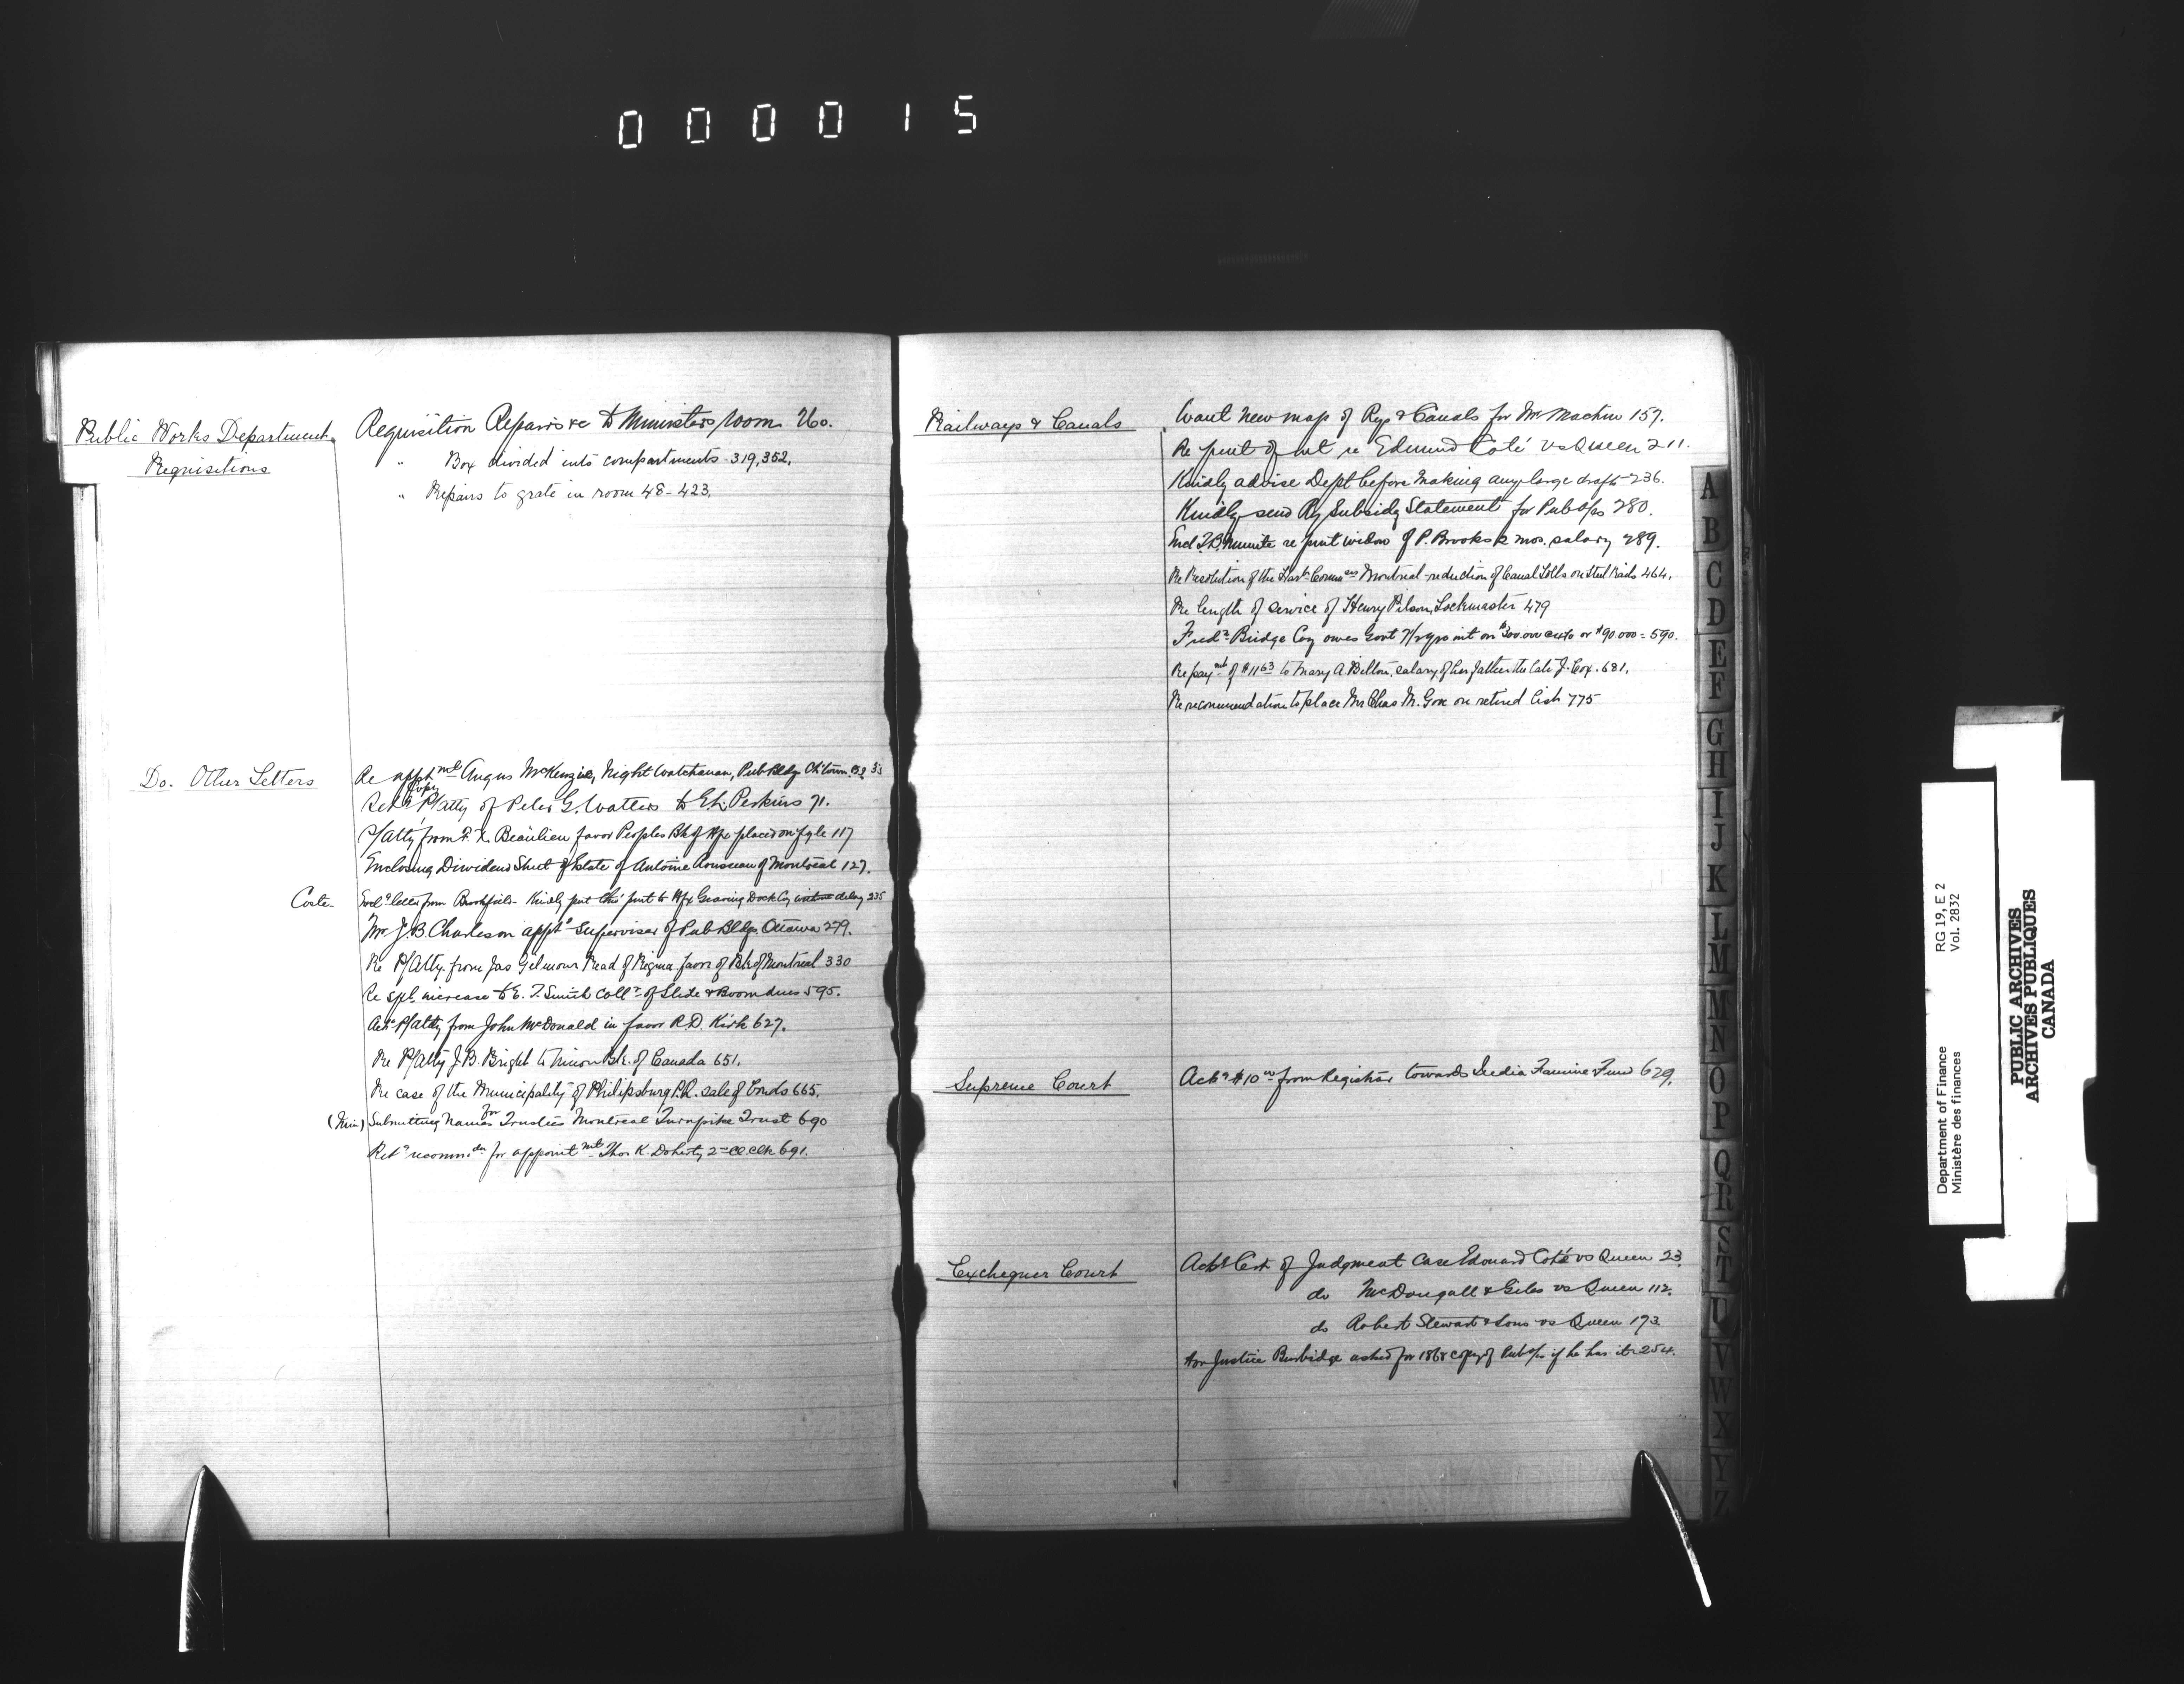 000015
Public Works Department
Requisitions
Requisition Repairs &c to Ministers room 260.
" Box divided into compartments - 319, 352,
" Repairs to grate in room 48 - 423.
Do. Other Letters
Re appt mt Angus McKenzie, Night Watchman, Pub Bldg Ch'town
Copy
P/atty of Peter G. Watters to E.L. Perkins 71.
P/atty from F. X. Beaulieu favor Peoples Bk of Hfx placed on fyle 117
Enclosing Dividend Sheet of Estate of Antoine Rousseau of Montreal 127.
Coste - Encl g letter from Brookfield - Kindly put this pmt to Hfx Graving Dock Coy without delay 235
Mr J.B. Charleson appt d Supervisor of Pub Bldgs. Ottawa 279.
Re P/Atty. from Jas Gilmour Read of Regina favor of Bk of Montreal 330
Re spl. increase to E. T. Smith Coll r of Slide & Boom dues 595.
Ack g P/atty from John McDonald in favor R.D. Kirk 627.
Re P/Atty J.B. Bright to Union Bk. of Canada 651.
Re case of the Municipality of Philipsburg P.Q. sale of bonds 665.
(Min) Submitting names for Trustees Montreal Turnpike Trust 690
Ret g recomm. dn for appoint mt Thos K Doherty 2nd Cl Clk 691.
Railways & Canals
Want New map of Rys & Canals for Mr Machin 157.
Re pmt of int re Edmund Coté vs Queen 211.
Kindly advise Dept before making any large drafts 236.
Kindly send Ry Subsidy Statement for Pub o/ps 280.
Encl. T.B. Minute re pmt widow of P. Brooks 2 mos. salary 289.
Re Resolution of the Harb. Comm ers Montreal - reduction of Canal Tolls on Steel Rails 464.
Re length of service of Henry Pilson, Lockmaster 479
Fred n Bridge Coy owes Govt int on $300.000 or $90.000 = 590.
Re pay mt of $11 63 to Mary A. Belton, salary of her father the late J. Cox. 681.
Re recommendation to place Mr Chas M. Gove on retired list 775
Supreme Court
Ack g $10 00 from Registrar towards India Famine Fund 629.
Exchequer Court
Ack g Cert of Judgment Case Edouard Coté vs Queen 23.
do McDougall & Giles vs Queen 112.
do Robert Stewart & Sons vs Queen 173
Hon Justice Burbidge asked for 1868 copy of Pub o/ps if he has it 254.
A
B
C
D
E
F
G
H
I
J
K
L
M
M
N
O
P
Q
R
S
T
U
V
W
X
Y
Z
Department of Finance
Ministère des finances
RG 19, E 2
Vol. 2832
PUBLIC ARCHIVES
ARCHIVES PUBLIQUES
CANADA